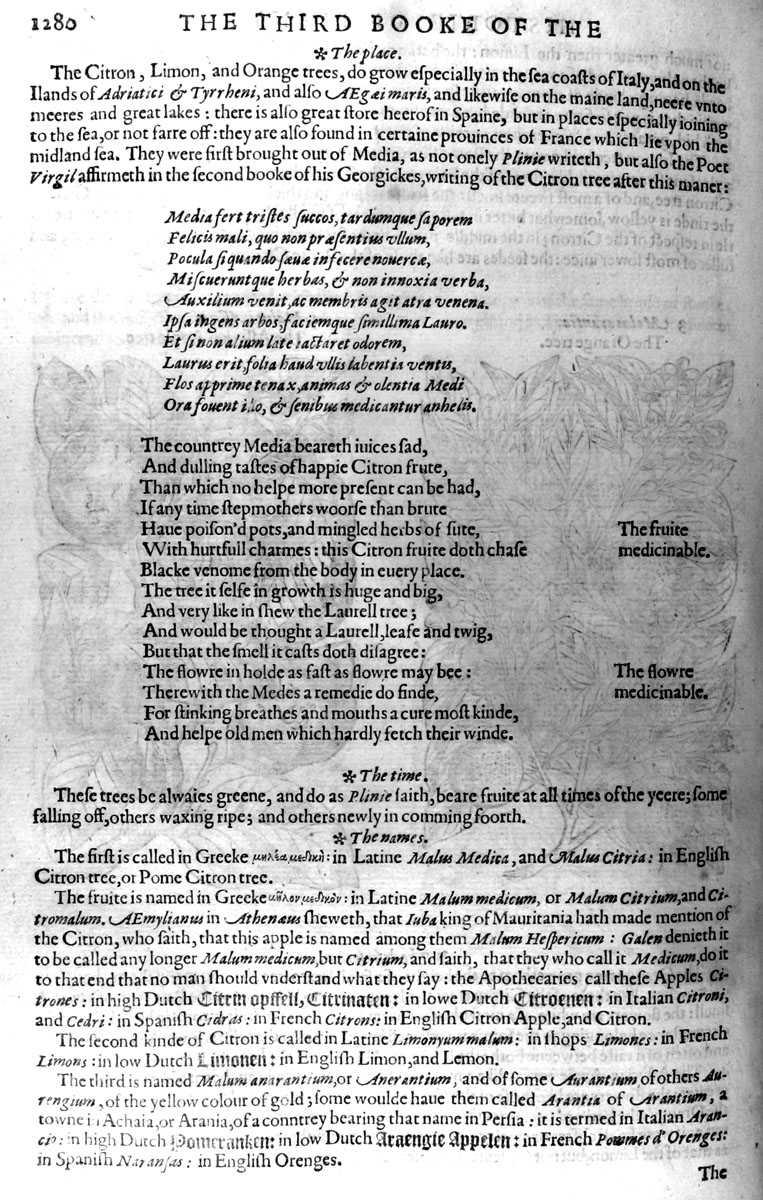 1280 THE THIRD BOOKE OF THE
✻ The place.
The Citron, Limon, and Orange trees, do grow eſpecially in the ſea coaſts of Italy, and on the
Ilands of Adriatici & Tyrrheni, and alſo AEgæi maris, and likewiſe on the maine land, neere vnto
meeres and great lakes: there is alſo great ſtore heerof in Spaine, but in places eſpecially ioining
to the ſea, or not farre off: they are alſo found in certaine prouinces of France which lie vpon the
midland ſea. They were firſt brought out of Media, as not onely Plinie writeth, but alſo the Poet
Virgil affirmeth in the ſecond booke of his Georgickes, writing of the Citron tree after this maner:
Media fert triſtes ſuccos, tardumque ſaporem
Felicis mali, quo non præſentius vllum,
Pocula ſi quando ſæuæ infecere nouercæ,
Miſcueruntque herbas, & non innoxia verba,
Auxilium venit, ac membris agit atra venena.
Ipſa ingens arbos, faciemque ſimillima Lauro.
Et ſi non alium late iactaret odorem,
Laurus erit, folia haud vllis labentia ventis,
Flos apprime tenax, animas & olentia Medi
Ora fouent illo, & ſenibus medicantur anhelis.
The countrey Media beareth iuices ſad,
And dulling taſtes of happie Citron frute,
Than which no helpe more preſent can be had,
If any time ſtepmothers woorſe than brute
Haue poiſon'd pots, and mingled herbs of ſute, The fruite
With hurtfull charmes: this Citron fruite doth chaſe medicinable.
Blacke venome from the body in euery place.
The tree it ſelfe in growth is huge and big,
And very like in ſhew the Laurell tree;
And would be thought a Laurell, leafe and twig,
But that the ſmell it caſts doth diſagree:
The flowre in holde as faſt as flowre may bee: The flowre
Therewith the Medes a remedie do finde, medicinable.
For ſtinking breathes and mouths a cure moſt kinde,
And helpe old men which hardly fetch their winde.
✻ The time.
Theſe trees be alwaies greene, and do as Plinie ſaith, beare fruite at all times of the yeere; ſome
falling off, others waxing ripe; and others newly in comming foorth.
✻ The names.
The firſt is called in Greeke μηλέα μεδικὴ: in Latine Malus Medica, and Malus Citria: in Engliſh
Citron tree, or Pome Citron tree.
The fruite is named in Greeke μῆλον μεδικὸν: in Latine Malum medicum, or Malum Citrium, and Ci-
tromalum. AEmylianus in Athenæus ſheweth, that Iuba king of Mauritania hath made mention of
the Citron, who ſaith, that this apple is named among them Malum Heſpericum: Galen denieth it
to be called any longer Malum medicum, but Citrium, and ſaith, that they who call it Medicum, do it
to that end that no man ſhould vnderſtand what they ſay: the Apothecaries call theſe Apples Ci-
trones: in high Dutch Citrin opffell, Citrinaten: in lowe Dutch Citroenen: in Italian Citroni,
and Cedri: in Spaniſh Cidras: in French Citrons: in Engliſh Citron Apple, and Citron.
The ſecond kinde of Citron is called in Latine Limonyum malum: in ſhops Limones: in French
Limons: in low Dutch Limonen: in Engliſh Limon, and Lemon.
The third is named Malum anarantium, or Anerantium, and of ſome Aurantium, of others Au-
rengium, of the yellow colour of gold; ſome woulde haue them called Arantia of Arantium, a
towne in Achaia, or Arania, of a conntrey bearing that name in Perſia: it is termed in Italian Aran-
cio: in high Dutch Pomeranken: in low Dutch Araengie Appelen: in French Pommes d'Orenges:
in Spaniſh Naranſas: in Engliſh Orenges.
The